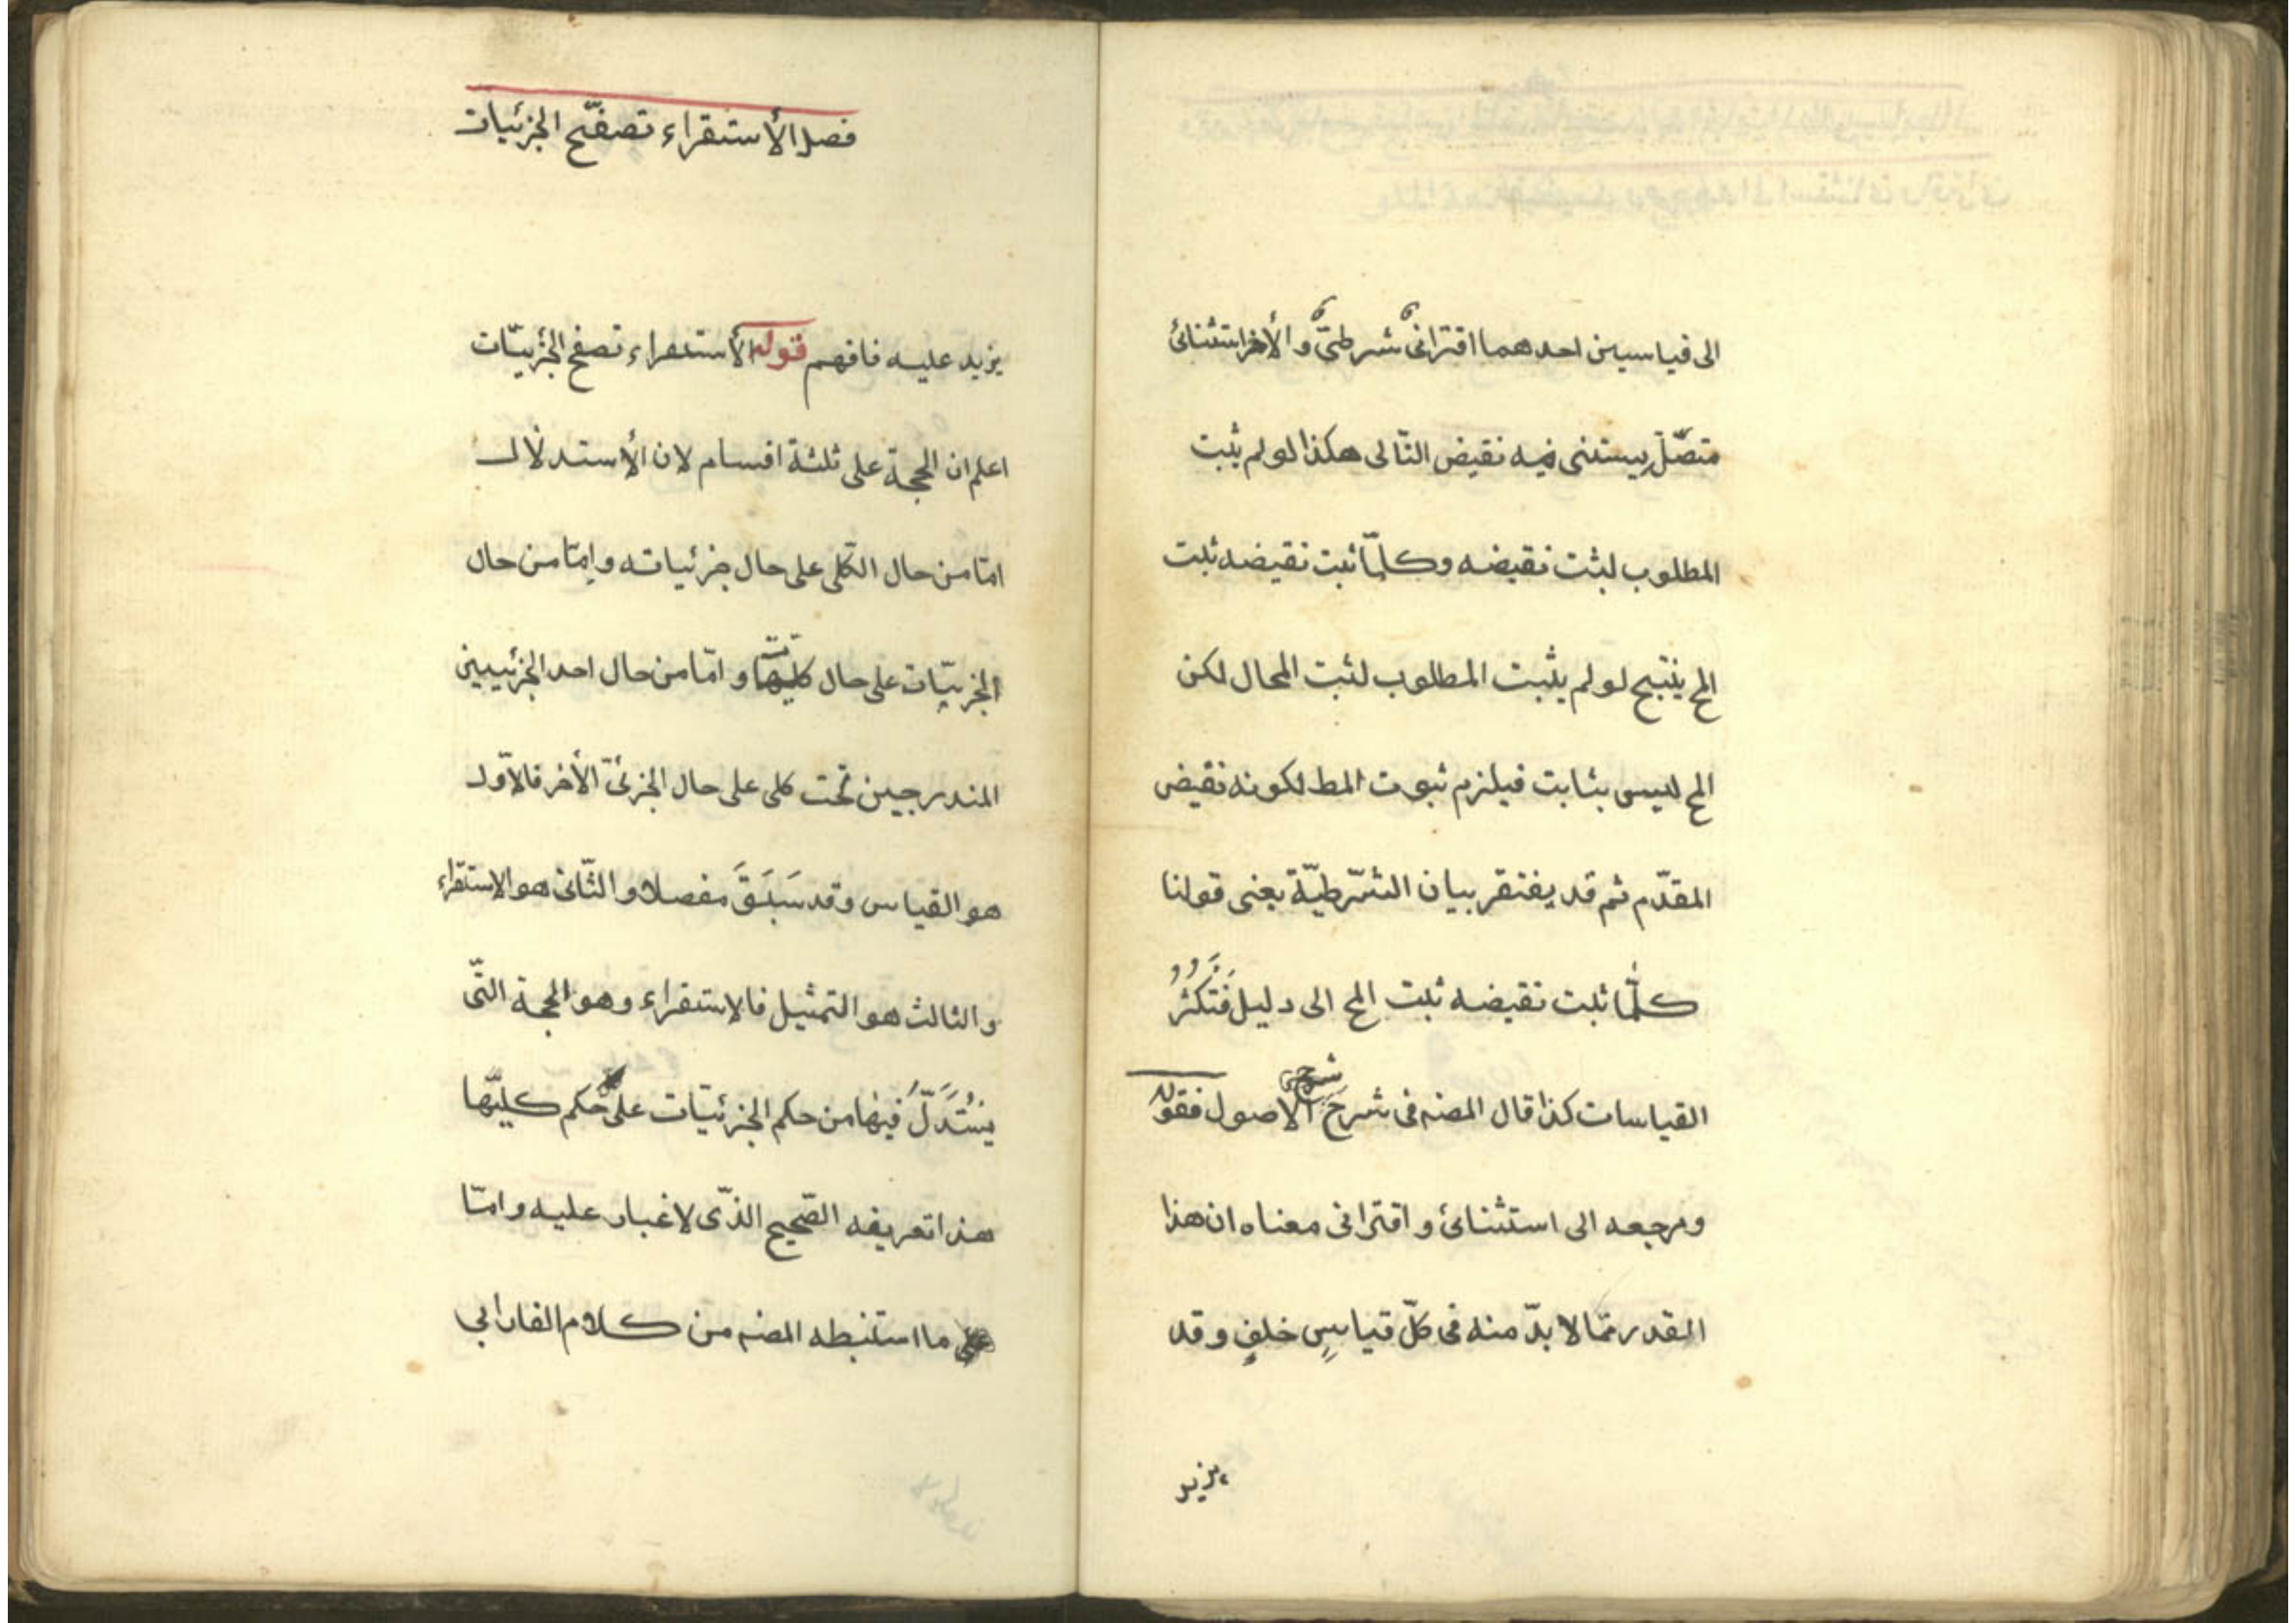 الى قياسين احدهما اقترانىّ شرطىّ والأخر استثنائى
متصّل يستثنى فيه نقيض التّالى هكذا لو لم يثبت
المطلوب لثبت نقيضه وكلّما ثبت نقيضه ثبت
المح ينتج لو لم يثبت المطلوب لثبت المحال لكن
المح ليس بثابت فيلزم ثبوت المط لكونه نقيض
المقدّم ثم قد يفتقر بيان الشّرطيّة يعنى قولنا
كلّما ثبت نقيضه ثبت المح الى دليل فَتَكَثَّرُ
القياسات كذا قال المصنه فى شرح الاصول فقوله
ومرجعه الى استثنائى واقترانى معناه ان هذا
القدر ممّا لا بدّ منه فى كلّ قياسٍ خلفٍ وقد
يزيد
فصل الأستقراء تصفّح الجزئيات
يزيد عليه فافهم قوله الأستقراء تصفح الجزئيّات
اعلم ان الحجة على ثلثة اقسام لان الأستدلال
امّا من حال الكلّى على حال جزئياته وامّا من حال
الجزئيّات على حال كليّها وامّا من حال احد الجزئيين
المندرجين تحت كلى على حال الجزئىّ الأخر فالاوّل
هو القياس وقد سَبَقَ مفصلا والثّانى هو الاستقراء
والثالث هو التمثيل فالاستقراء وهو الحجة التّى
يُسْتَدَلُّ فيها من حكم الجزئيّات على حكم كليّها
هذا تعريفه الصّحيح الذّى لا غبار عليه وامّا
ما استنبطه المصنه من كلام الفارابى